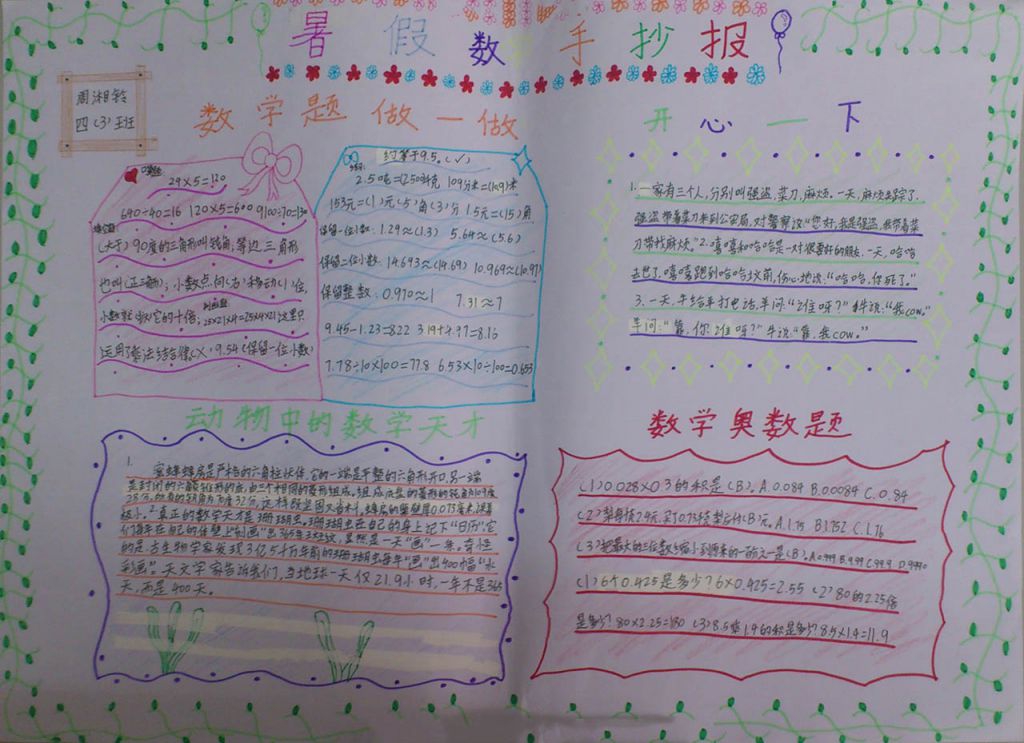 暑假数学手抄报
周湘铃
四(3)班
数学题做一做
29×5=120
640÷40=16 120×5=600 9100÷70=130
(大于)90度的三角形叫钝角,等边三角形
也叫(正三角形);小数点向(右)移动(1)位,
小数就扩大它的十倍;25×21×4=25×4×21这里只
运用了乘法结合律(×)9.54(保留一位小数)
约等于9.5。(√)
2.5吨=(2500)千克 109分米=(10.9)米
153元=(1)元(5)角(3)分 1.5元=(15)角
保留一位小数:1.29≈(1.3) 5.64≈(5.6)
保留二位小数:14.693≈(14.69) 10.969≈(10.97)
保留整数:0.970≈1 7.31≈7
9.45-1.23=8.22 3.19+4.97=8.16
7.78÷10×100=77.8 6.53×10÷100=0.653
开心一下
1.一家有三个人,分别叫强盗,菜刀,麻烦。一天,麻烦走踪了,
强盗带着菜刀来到公安局,对警察说:“您好,我是强盗,我带着菜
刀带找麻烦。”2.嘻嘻和哈哈是一对很要好的朋友,一天,哈哈
去世了,嘻嘻跑到哈哈坟前,伤心地说:“哈哈,你死了。”
3.一天,牛给羊打电话,羊问:“谁呀?”牛说:“我cow。”
羊问:“靠,你谁呀?”牛说:“靠,我cow。”
动物中的数学天才
1. 蜜蜂蜂房是严格的六角柱状体,它的一端是平整的六角形开口,另一端
是封闭的六角菱锥形的底,由三个相同的菱形组成。组成底盘的菱形的钝角为109度
28分,所有的锐角为70度32分,这样既坚固又省料。蜂房的巢壁厚0.073毫米,误差
极小。2.真正的数学天才是珊瑚虫。珊瑚虫在自己的身上记下“日历”,它
们每年在自己的体壁上“刻画”出365条斑纹,显然是一天“画”一条。奇怪
的是,古生物学家发现3亿5千万年前的珊瑚虫每年“画”出400幅“水
彩画”。天文学家告诉我们,当地球一天仅21.9小时,一年不是365
天,而是400天。
数学奥数题
(1)0.028×0.3的积是(B)。A.0.084 B.0.0084 C.0.84
(3)把最大的三位数缩小到原来的一千分之一是(B)。A.0.999 B.9.99 C.99.9 D.0.9990
(1)6个0.425是多少?6×0.425=2.55 (2)80的2.25倍
是多少?80×2.25=180 (3)8.5乘1.4的积是多少?8.5×1.4=11.9